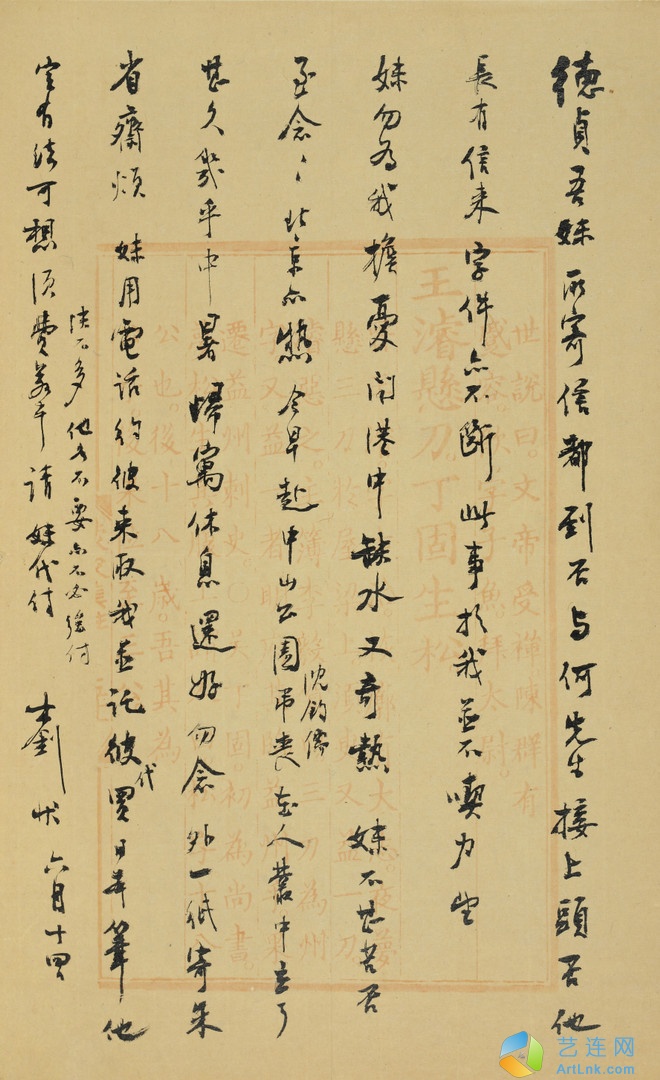 德貞吾妹 所寄信都到否 与何先生接上頭否 他
長有信來 字件亦不斷 此事於我並不喫力 望
妹勿為我擔憂 聞港中缺水又奇熱 妹不甚苦否
至念〻 北京亦熱 今早赴中山公園弔喪 在人叢中立了
沈鈞儒
甚久幾乎中暑 歸寓休息還好 勿念 外一紙寄朱
省齋煩 妹用電話約彼來取 我並託彼代買日本筆 他
定有法可想 須費若干請妹代付
諒不多 他如不要亦不必強付
士釗 狀 六月十四
世說曰。文帝受禪陳群有
王濬懸刀丁固生松
艺连网
ArtLnk.com